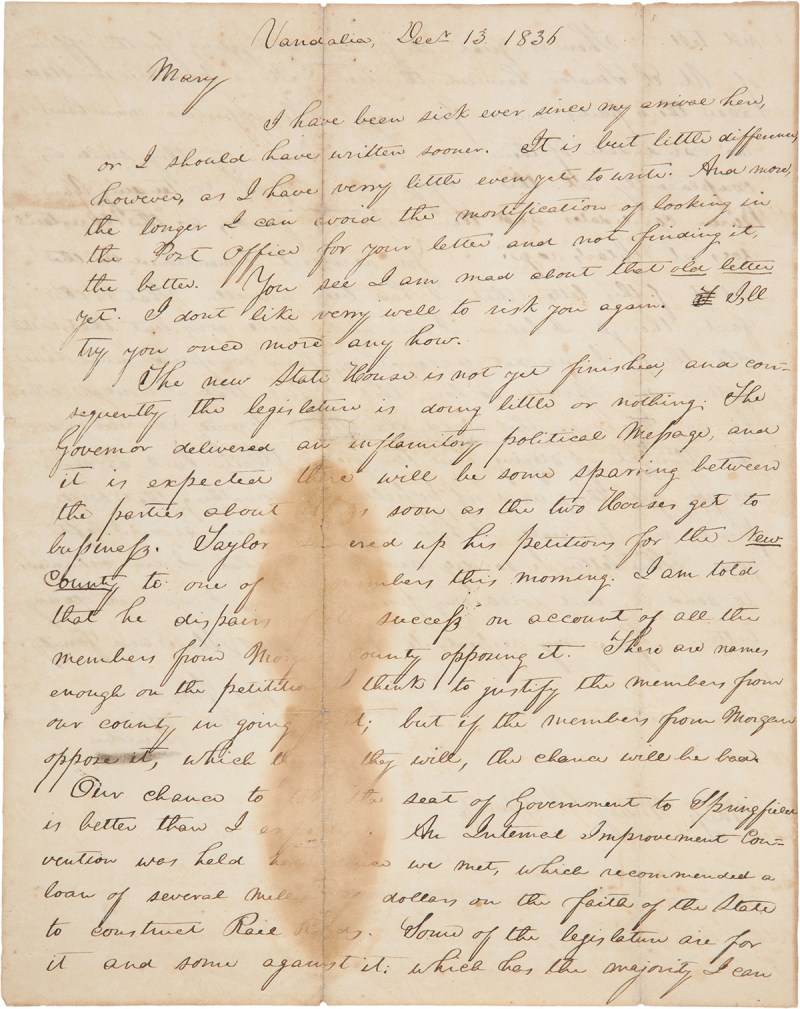 Vandalia, Decr 13 1836
Mary
I have been sick ever since my arrival here,
or I should have written sooner. It is but little difference,
however, as I have verry little even yet to write. And more,
the longer I can avoid the mortification of looking in
the Post Office for your letter and not finding it,
the better. You see I am mad about that old letter
yet. I dont like verry well to risk you again. I'll
try you once more any how.
The new State House is not yet finished, and con=
sequently the legislature is doing little or nothing. The
Governor delivered an inflamitory political Message, and
it is expected there will be some sparring between
the parties about as soon as the two Houses get to
bussiness. Taylor up his petitions for the New
County to one of this morning. I am told
that he dispairs success on account of all the
members from County opposing it. There are names
enough on the petition I think to justify the members from
our county in going it; but if the members from Morgan
oppose it, which they will, the chance will be bad
Our chance to the seat of Government to Springfield
is better than I An Internal Improvement Con=
vention was held we met, which recommended a
loan of several dollars on the faith of the State
to construct Rail Roads. Some of the legislature are for
it and some against it; which has the majority I can